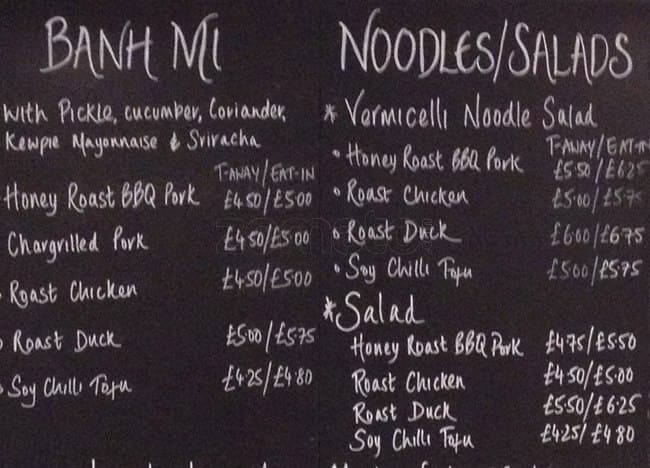 BANH MI
With Pickle, cucumber, Coriander,
Kewpie Mayonnaise & Sriracha
T-AWAY/EAT-IN
Honey Roast BBQ Pork £4.50/£5.00
Chargrilled Pork £4.50/£5.00
Roast Chicken £4.50/£5.00
Roast Duck £5.00/£5.75
Soy Chilli Tofu £4.25/£4.80
NOODLES/SALADS
* Vermicelli Noodle Salad
T-AWAY/EAT-IN
• Honey Roast BBQ Pork £5.50/£6.25
• Roast Chicken £5.00/£5.75
• Roast Duck £6.00/£6.75
• Soy Chilli Tofu £5.00/£5.75
* Salad
Honey Roast BBQ Pork £4.75/£5.50
Roast Chicken £4.50/£5.00
Roast Duck £5.50/£6.25
Soy Chilli Tofu £4.25/£4.80